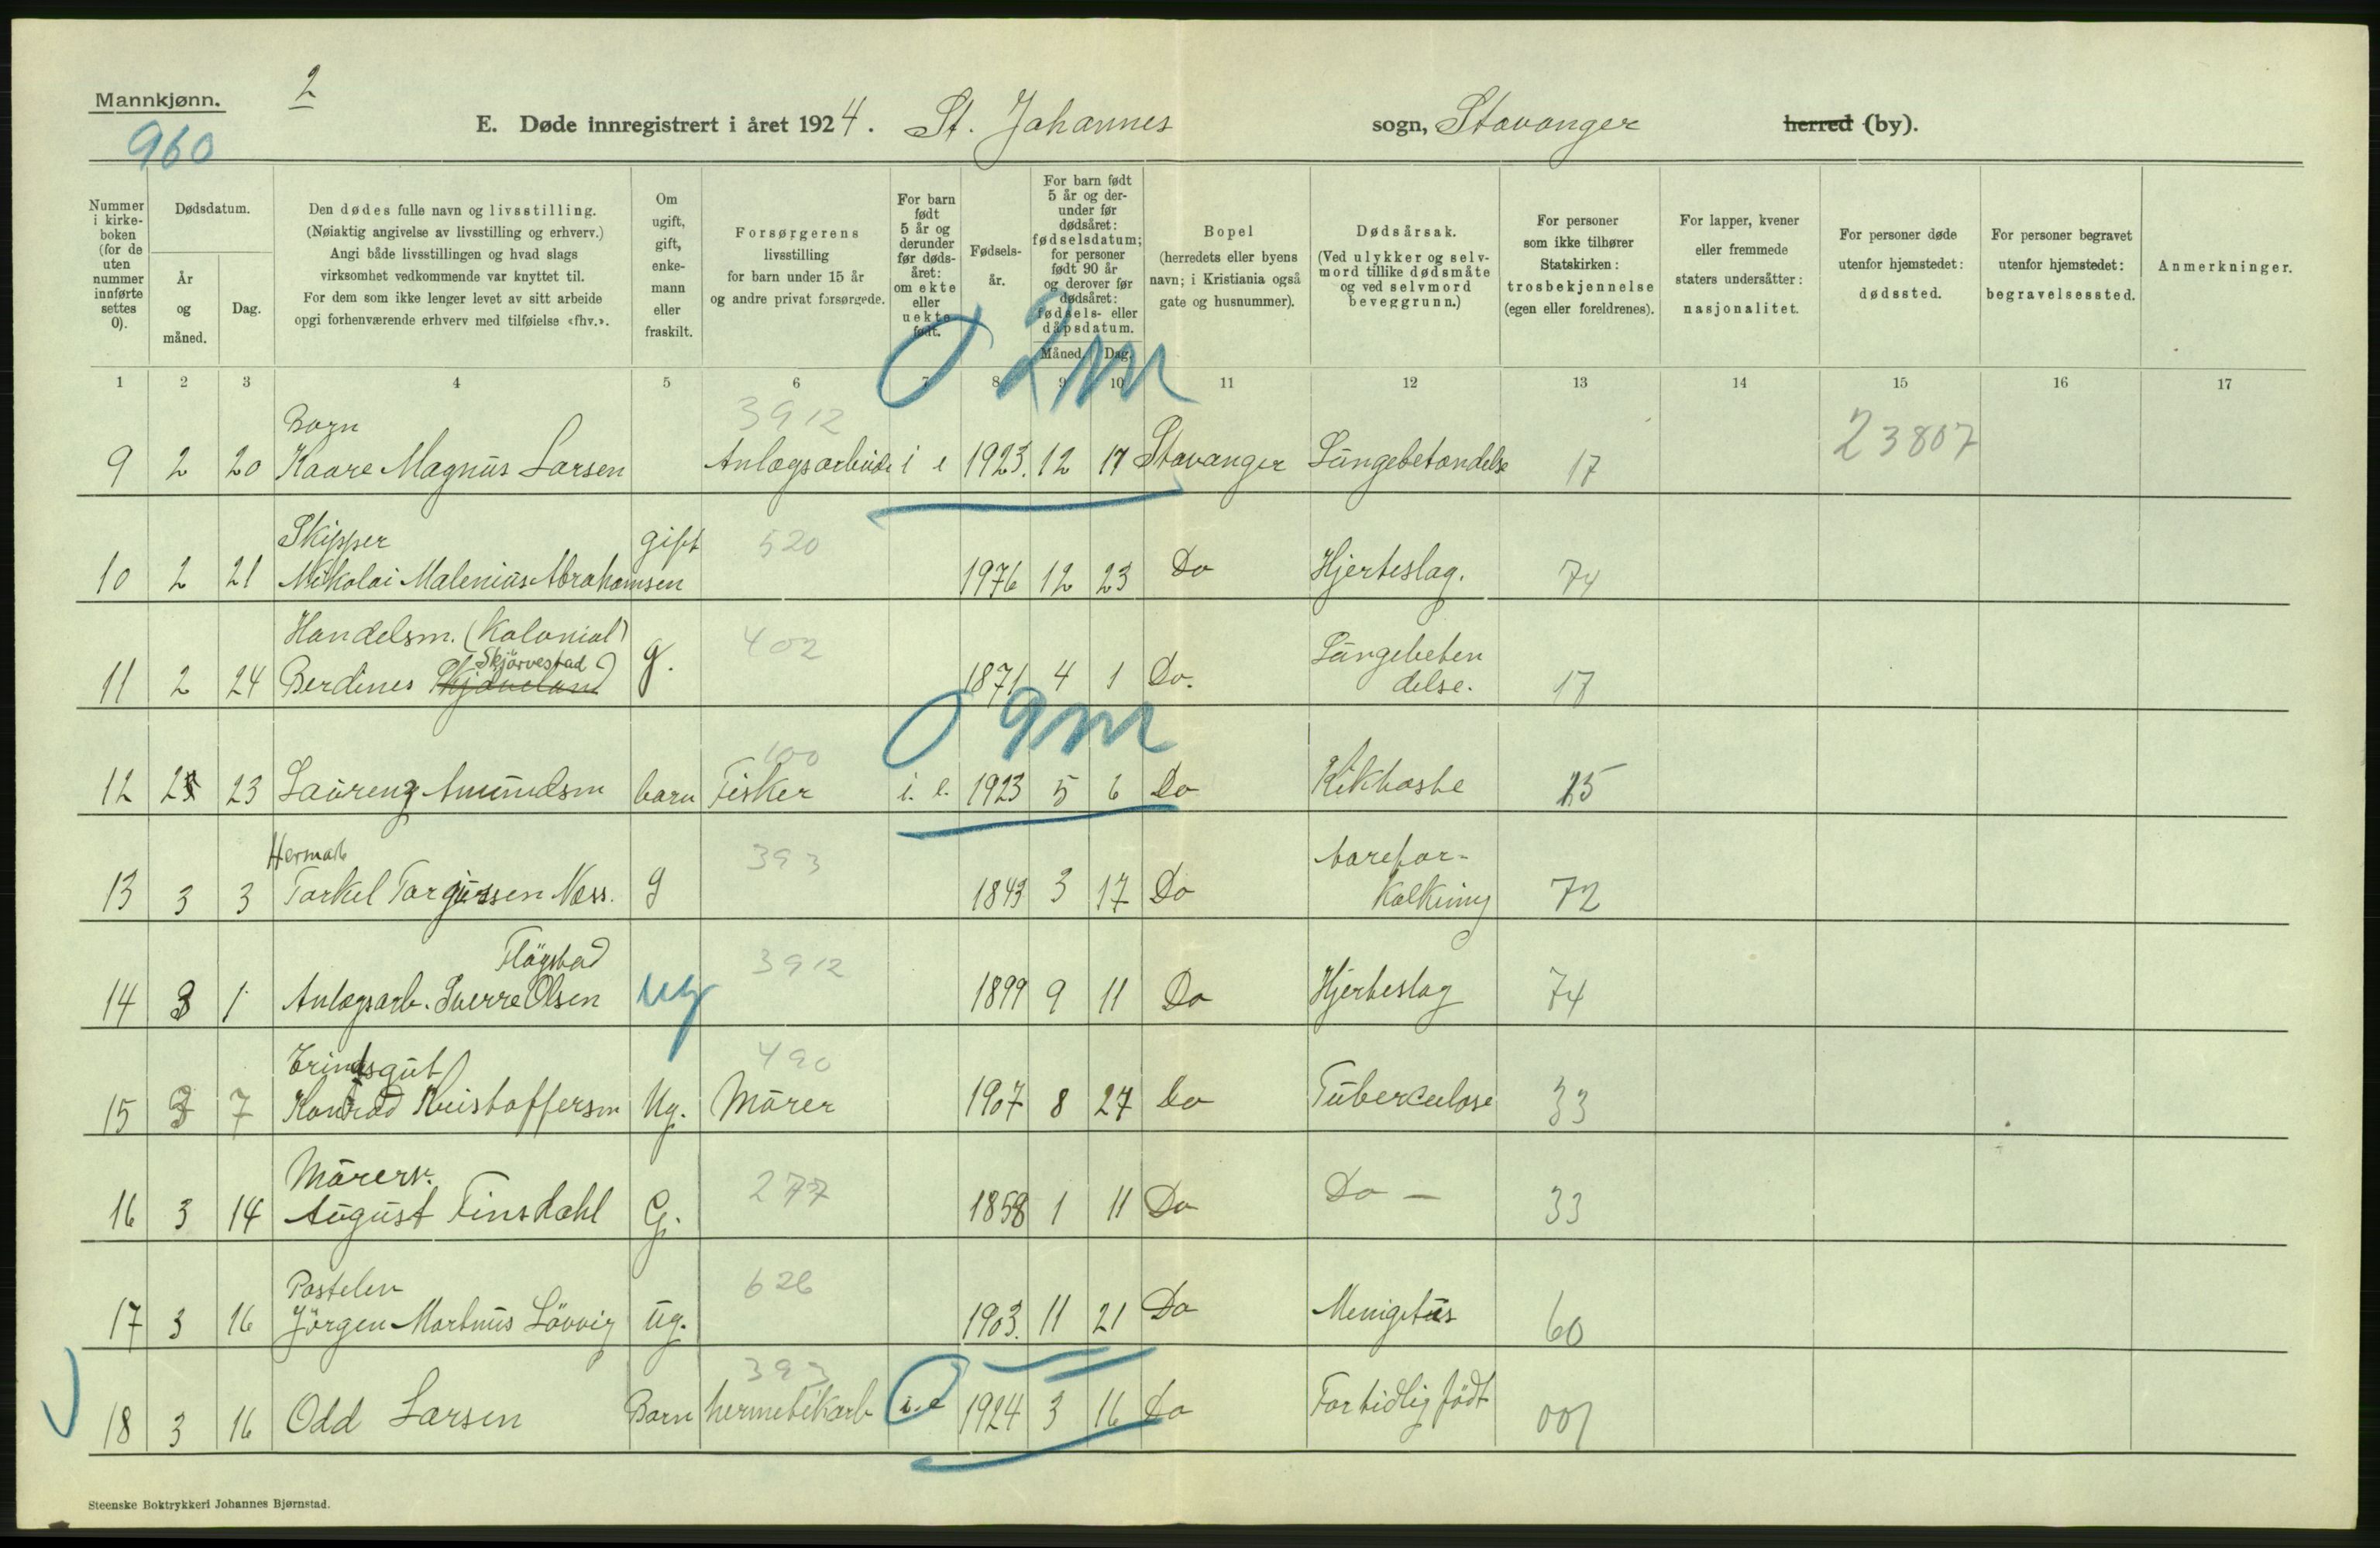 Mannkjønn.
2
960
E. Døde innregistrert i året 1924. St. Johannes sogn, Stavanger herred (by).
Nummer i kirke-boken (for de uten nummer innførte settes 0).
Dødsdatum.
År og måned.
Dag.
Den dødes fulle navn og livsstilling.
(Nøiaktig angivelse av livsstilling og erhverv.)
Angi både livsstillingen og hvad slags
virksomhet vedkommende var knyttet til.
For dem som ikke lenger levet av sitt arbeide
opgi forhenværende erhverv med tilføielse «fhv.».
Om ugift, gift, enke-mann eller fraskilt.
Forsørgerens
livsstilling
for barn under 15 år
og andre privat forsørgede.
For barn født 5 år og derunder før døds-året: om ekte eller uekte født.
Fødsels-år.
For barn født 5 år og der-under før dødsåret: fødselsdatum; for personer født 90 år og derover før dødsåret: fødsels- eller dåpsdatum.
Måned. Dag.
Bopel
(herredets eller byens
navn; i Kristiania også
gate og husnummer).
Dødsårsak.
(Ved ulykker og selv-
mord tillike dødsmåte
og ved selvmord
beveggrunn.)
For personer
som ikke tilhører
Statskirken:
trosbekjennelse
(egen eller foreldrenes).
For lapper, kvener
eller fremmede
staters undersåtter:
nasjonalitet.
For personer døde
utenfor hjemstedet:
dødssted.
For personer begravet
utenfor hjemstedet:
begravelsessted.
Anmerkninger.
1 2 3 4 5 6 7 8 9 10 11 12 13 14 15 16 17
0 2m
Barn 3912
9 2 20 Kaare Magnus Larsen Anlægsarbeide i e 1923. 12 17 Stavanger Lungebetændelse 17 23807
Skipper gift 520
10 2 21 Nikolai Malenius Abrahamsen 1976 12 23 Do Hjerteslag. 74
Handelsm. (Kolonial) 402 Lungebeten
Skjørvestad
11 2 24 Berdines g. 1871 4 1 Do. delse. 17
0 9m
100
12 2 23 Laurenz Amundsen barn Fisker i. e. 1923 5 6 Do Kikhoste 15
Hermark 393 Aarefor-
13 3 3 Torkel Torgussen Næss. g 1843 3 17 Do Kalkning 72
Fløgstad 3912
14 3 1 Anlægsarb. Sverre Olsen ug 1899 9 11 Do Hjerteslag 74
490
15 3 7 Konrad Kristoffersen Ug. Murer 1907 8 27 Do Tuberculose 33
Murerv. 277
16 3 14 August Tinsdahl G. 1858 1 11 Do Do — 33
Postelev 626
17 3 16 Jörgen Martnus Lövvig ug. 1903. 11 21 Do Menigitus 60
393
18 3 16 Odd Larsen Barn hermetikarb i. e 1924 3 16 Do For tidlig født 001
Steenske Boktrykkeri Johannes Bjørnstad.